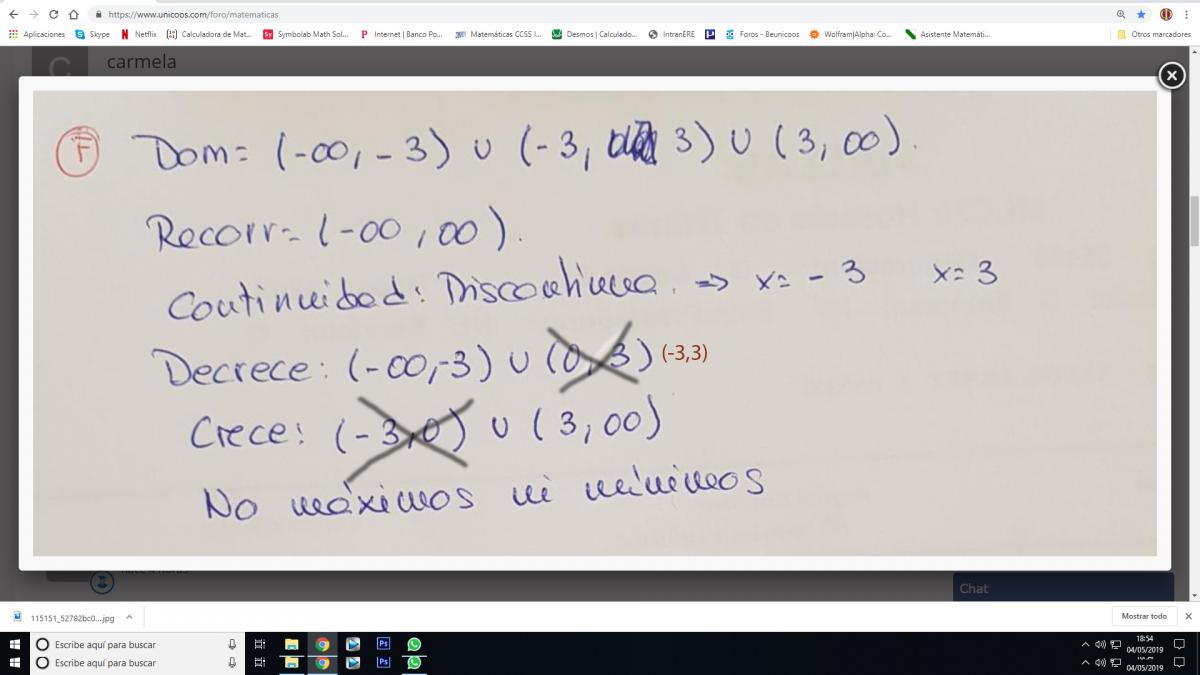 https://www.unicoos.com/foro/matematicas
Aplicaciones Skype Netflix Calculadora de Mat... Symbolab Math Sol... Internet | Banco Po... Matemáticas CCSS I... Desmos | Calculado... IntranERE Foros - Beunicoos Wolfram|Alpha: Co... Asistente Matemáti... Otros marcadores
C carmela
F Dom= (-∞, -3) ∪ (-3, 3) ∪ (3, ∞).
Recorr= (-∞, ∞).
Continuidad: Discontinua. ⇒ x= -3 x=3
Decrece: (-∞,-3) ∪ (0,3) (-3,3)
Crece: (-3,0) ∪ (3,∞)
No máximos ni mínimos
hace 4 horas
Chat
115151_52782bc0....jpg Mostrar todo
Escribe aquí para buscar 18:54
04/05/2019
Escribe aquí para buscar
04/05/2019